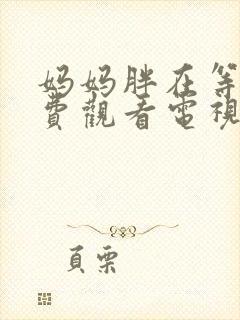 妈妈胖在等
費觀看電視
頁栗